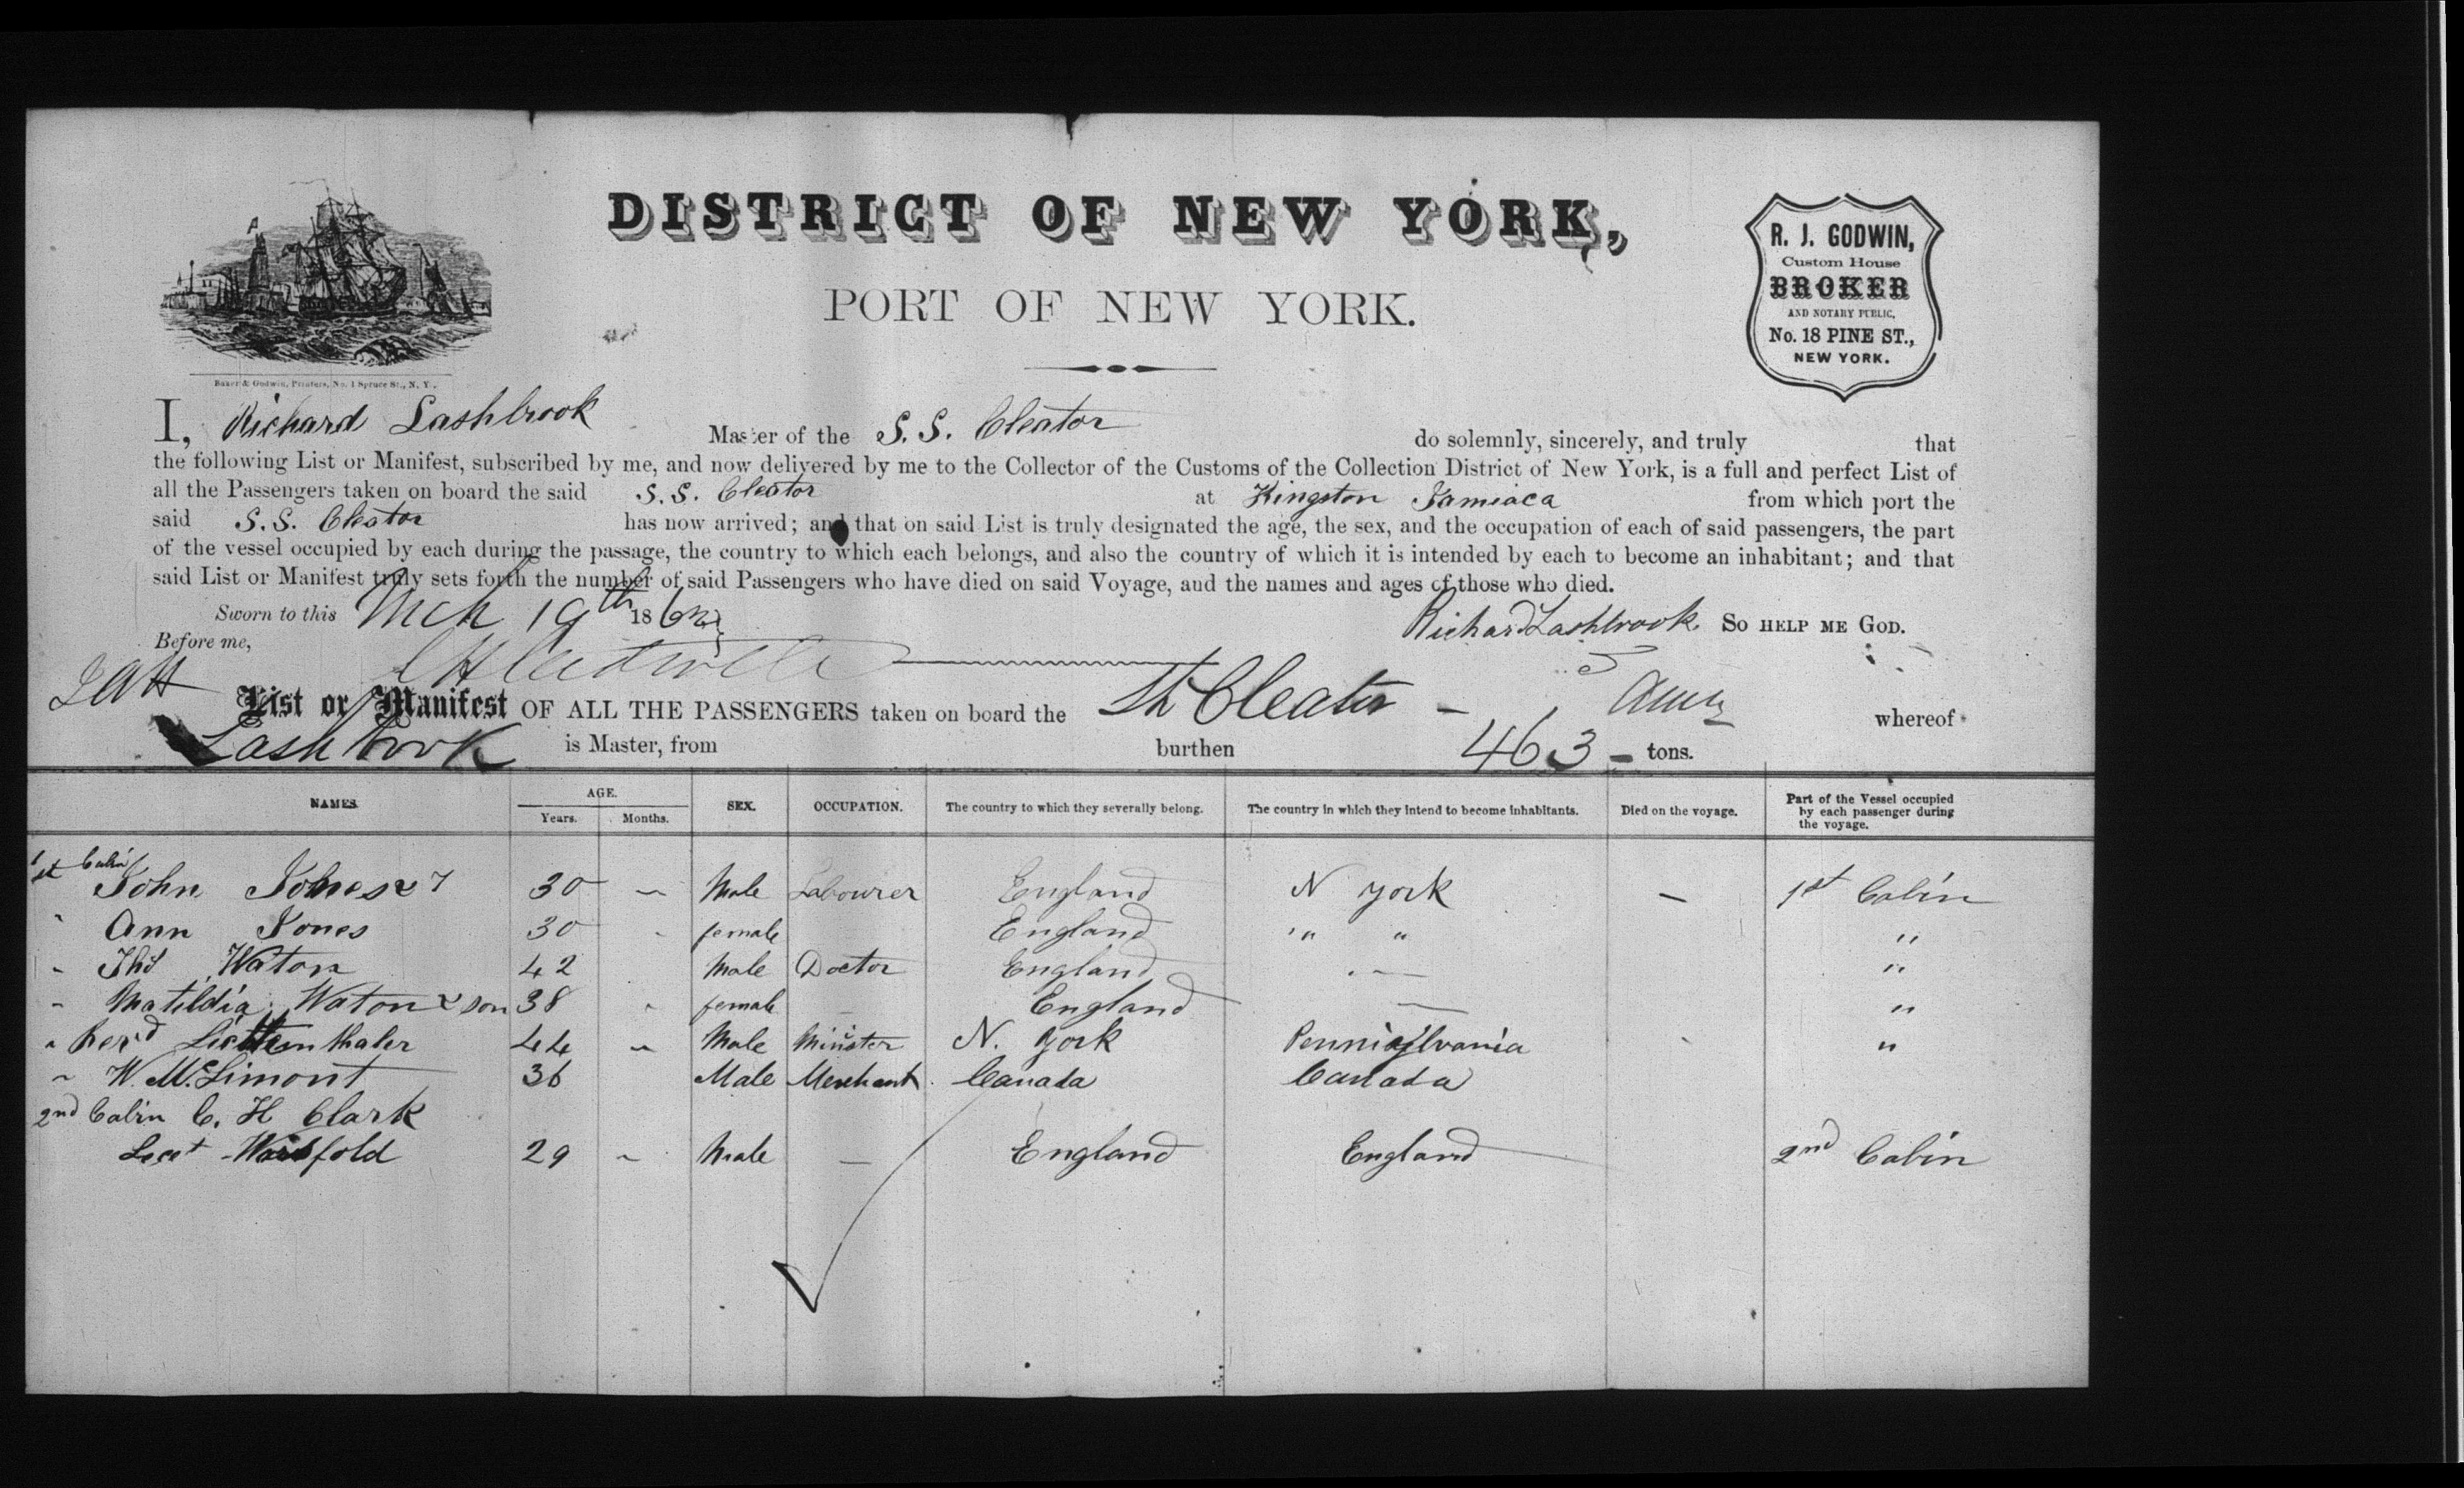 DISTRICT OF NEW YORK,
PORT OF NEW YORK.
R. J. GODWIN,
Custom House
BROKER
AND NOTARY PUBLIC,
No. 18 PINE ST.,
NEW YORK.
Baker & Godwin, Printers, No. 1 Spruce St., N. Y.
I, Richard Lashbrook Master of the S. S. Cleator do solemnly, sincerely, and truly that
the following List or Manifest, subscribed by me, and now delivered by me to the Collector of the Customs of the Collection District of New York, is a full and perfect List of
all the Passengers taken on board the said S. S. Cleator at Kingston Jamiaca from which port the
said S. S. Cleator has now arrived; and that on said List is truly designated the age, the sex, and the occupation of each of said passengers, the part
of the vessel occupied by each during the passage, the country to which each belongs, and also the country of which it is intended by each to become an inhabitant; and that
said List or Manifest truly sets forth the number of said Passengers who have died on said Voyage, and the names and ages of those who died.
Sworn to this Mch 19th 186 Richard Lashbrook SO HELP ME GOD.
Before me,
List or Manifest OF ALL THE PASSENGERS taken on board the Cleator - whereof
Lashbrook is Master, from burthen 463 - tons.
NAMES. AGE. Years. Months. SEX. OCCUPATION. The country to which they severally belong. The country in which they intend to become inhabitants. Died on the voyage. Part of the Vessel occupied by each passenger during the voyage.
1st Cabin
John Jones 30 Male Labourer England N York — 1st Cabin
" Ann Jones 30 female England " " "
" Thos Waton 42 Male Doctor England — "
" Matildia Waton & son 38 female England — "
" Revd Lichtenthaler 44 Male Minister N. York Pennisylvania "
" W. McLimont 36 Male Merchant Canada Canada
2nd Cabin C. H Clark
Leut Worsfold 29 Male — England England 2nd Cabin